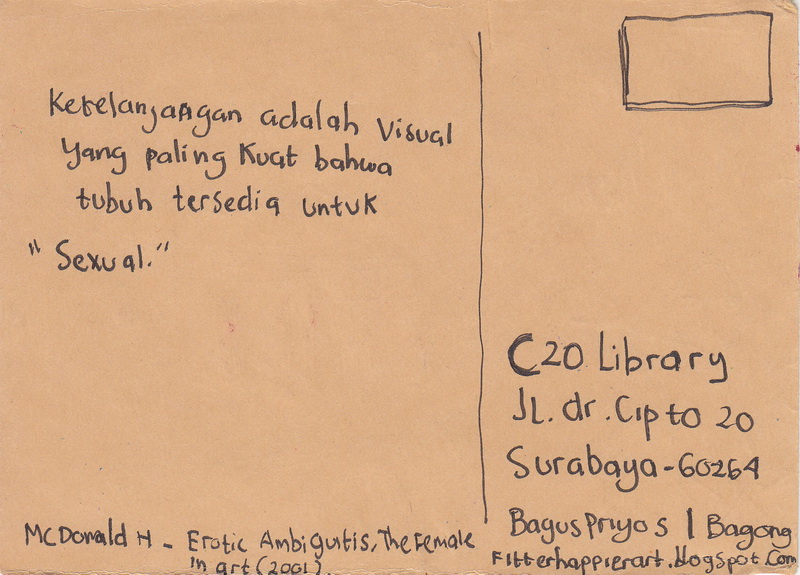 Ketelanjangan adalah Visual
Yang paling Kuat bahwa
tubuh tersedia untuk
"Sexual."
McDonald H - Erotic Ambiguitis, The Female
in art (2001).
C20 Library
JL. dr. Cipto 20
Surabaya-60264
Bagus Priyo s | Bagong
Fitterhappierart.blogspot.Com